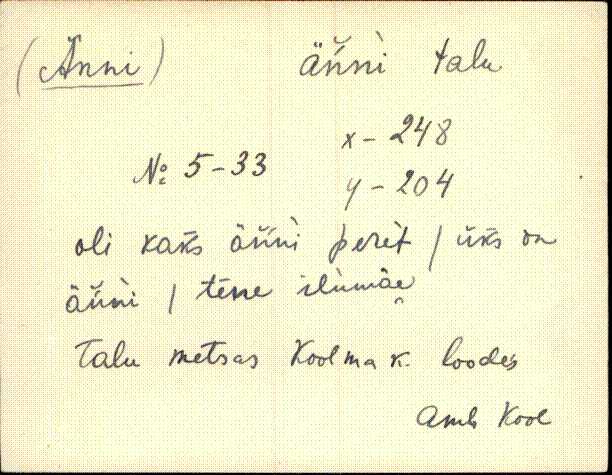 (Änni) än̆ni talu
x - 248
№ 5-33
y - 204
oli kaks än̆ni perèt / üks on
än̆ni / tene ilumäe
Talu metsas Koolma k. loodes
Amb Kool